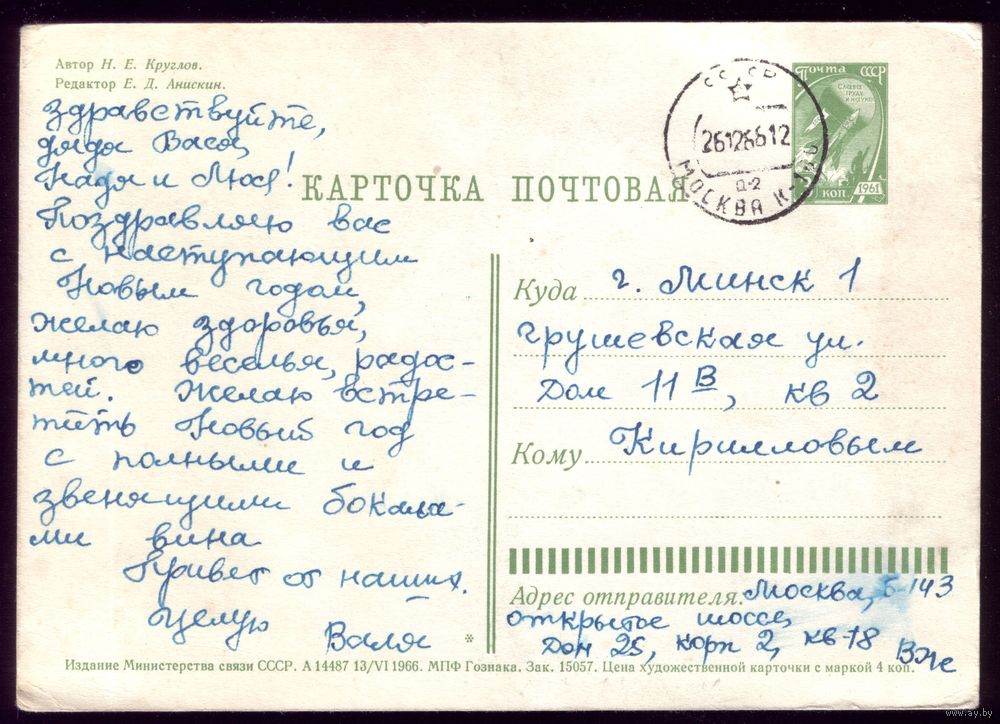 Автор Н. Е. Круглов.
Редактор Е. Д. Анискин.
Здравствуйте,
дядя Вася,
Надя и Люся!
Поздравляю вас
с наступающим
Новым годом,
желаю здоровья,
много веселья, радос-
тей. Желаю встре-
тить Новый год
с полными и
звенящими бокала-
ми вина
Привет от наших.
Целую
Валя
КАРТОЧКА ПОЧТОВАЯ
СССР
26126612
а-2
МОСКВА
ПОЧТА СССР
СЛАВА
ТРУДУ
И НАУКЕ
3 КОП
1961
Куда г. Минск 1
Грушевская ул.
Дом 11 В, кв 2
Кому Кирилловым
Адрес отправителя. Москва, Б-143
открытое шоссе,
Дом 25, корп 2, кв-18
*
Издание Министерства связи СССР. А 14487 13/VI 1966. МПФ Гознака. Зак. 15057. Цена художественной карточки с маркой 4 коп.
www.ay.by